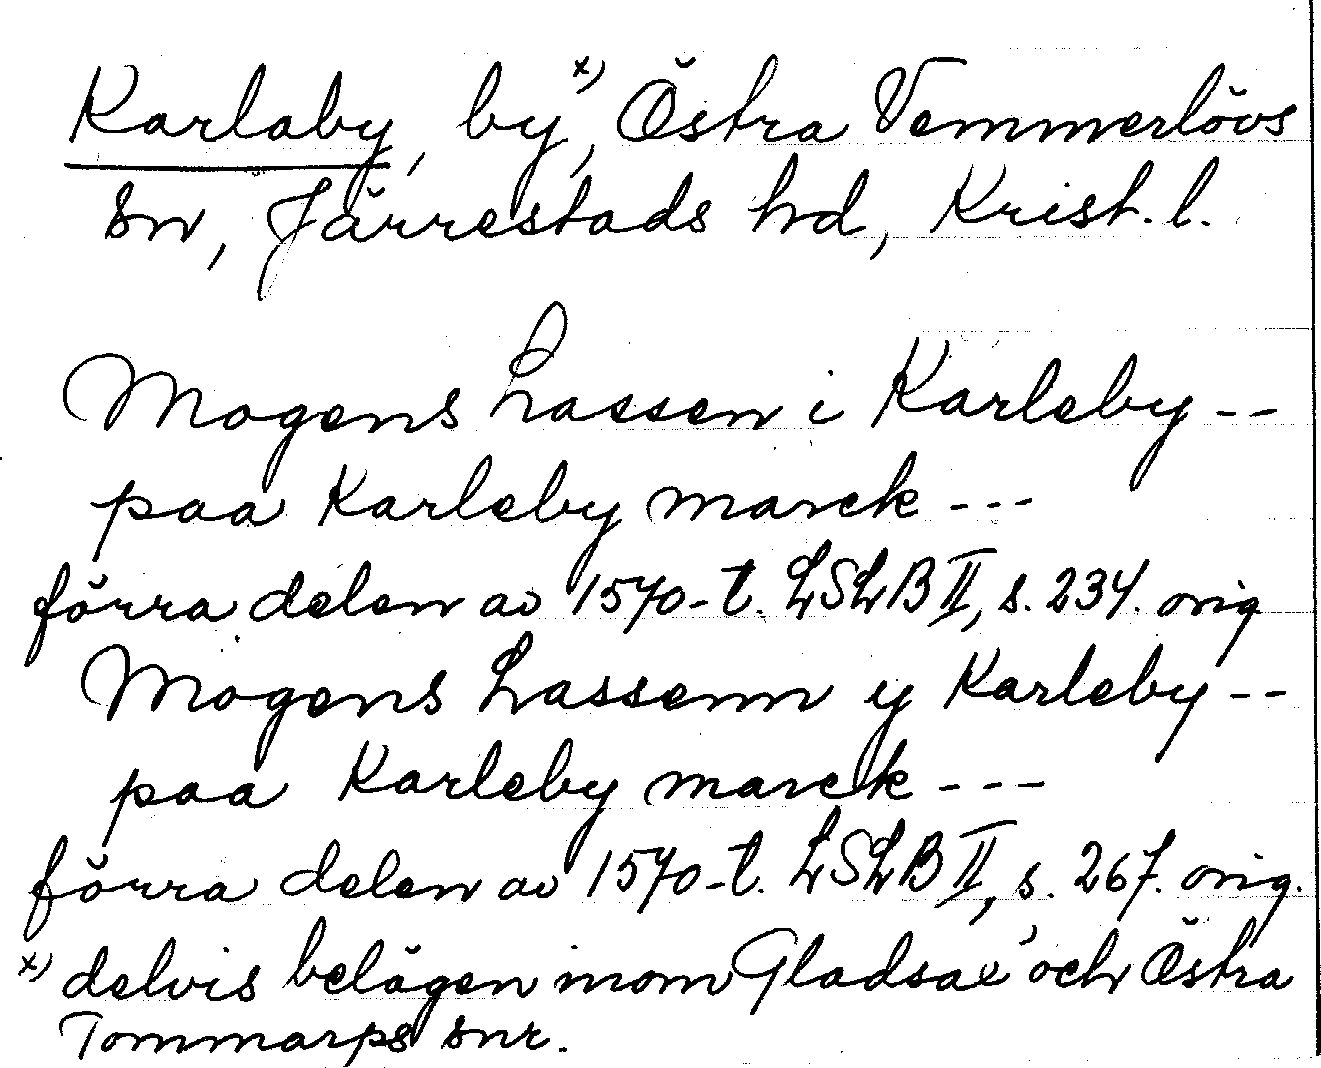 Karlaby, by x), Östra Vemmerlövs
sn, Järrestads hd, Krist. l.
Mogens Lassen i Karleby --
paa Karleby marck ---
förra delen av 1570-t. LSLB II, s. 234. orig
Mogens Lassenn y Karleby --
paa Karleby marck ---
förra delen av 1570-t. LSLB II, s. 267. orig.
x) delvis belägen inom Gladsax' och Östra
Tommarps snr.